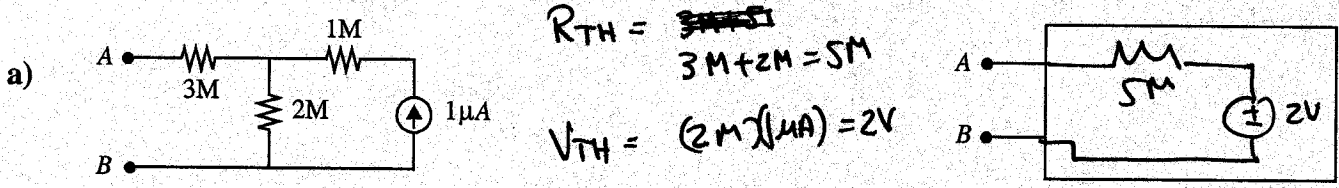 a)
A
3M
1M
2M
1μA
B
R_TH =
3M+2M = 5M
V_TH = (2M)(1μA) = 2V
A
5M
± 2V
B